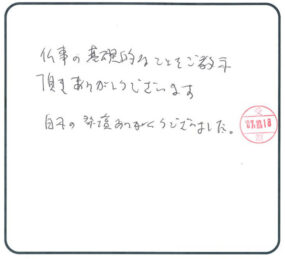 仏事の基礎的なことをご教示
頂きありがとうございます
自宅の 祭壇ありがとうございました。